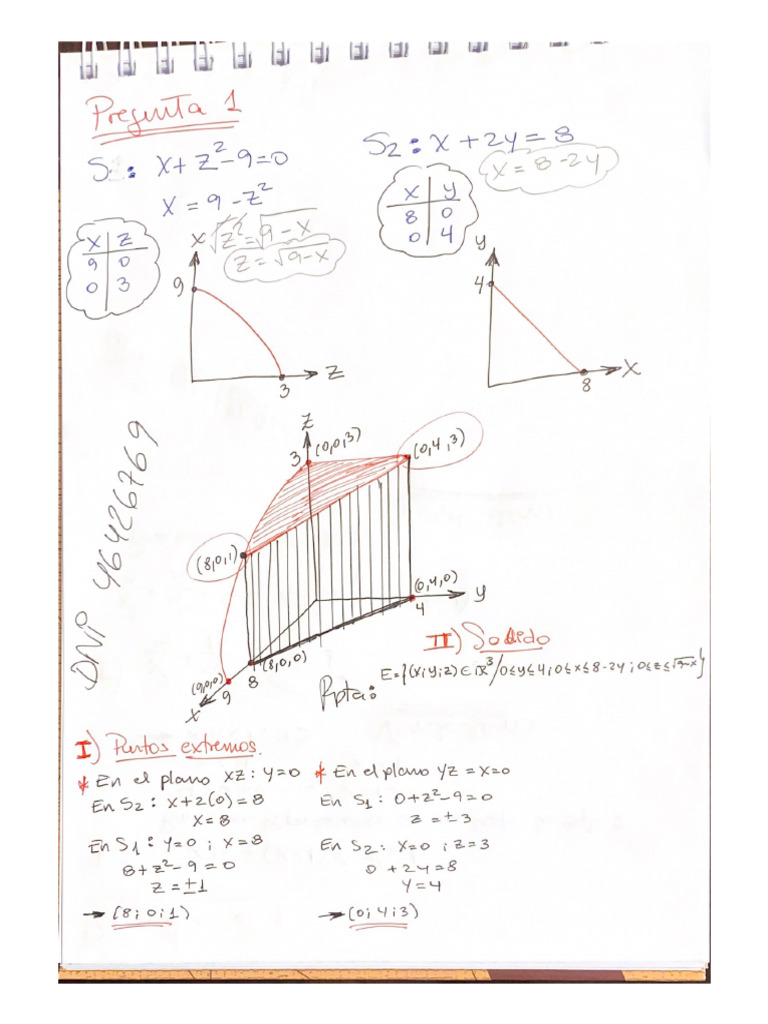 Pregunta 1
S1: x + z² - 9 = 0
x = 9 - z²
√z² = √9 - x
z = √9-x
x z
9 0
0 3
x
9
3
z
S2: x + 2y = 8
x = 8 - 2y
x y
8 0
0 4
y
4
8
x
z
3 (0,0,3)
(0,4,3)
(8,0,1)
(0,4,0)
4
y
(8,0,0)
8
(9,0,0)
9
x
DNI 46426769
II) Solido
Rpta: E={(x;y;z)∈ℝ³/0≤y≤4;0≤x≤8-2y;0≤z≤√9-x}
I) Puntos extremos.
* En el plano xz: y=0
En S2: x+2(0)=8
x=8
En S1: y=0; x=8
8+z²-9=0
z=±1
→ (8;0;1)
* En el plano yz = x=0
En S1: 0+z²-9=0
z=±3
En S2: x=0; z=3
0+2y=8
y=4
→ (0;4;3)